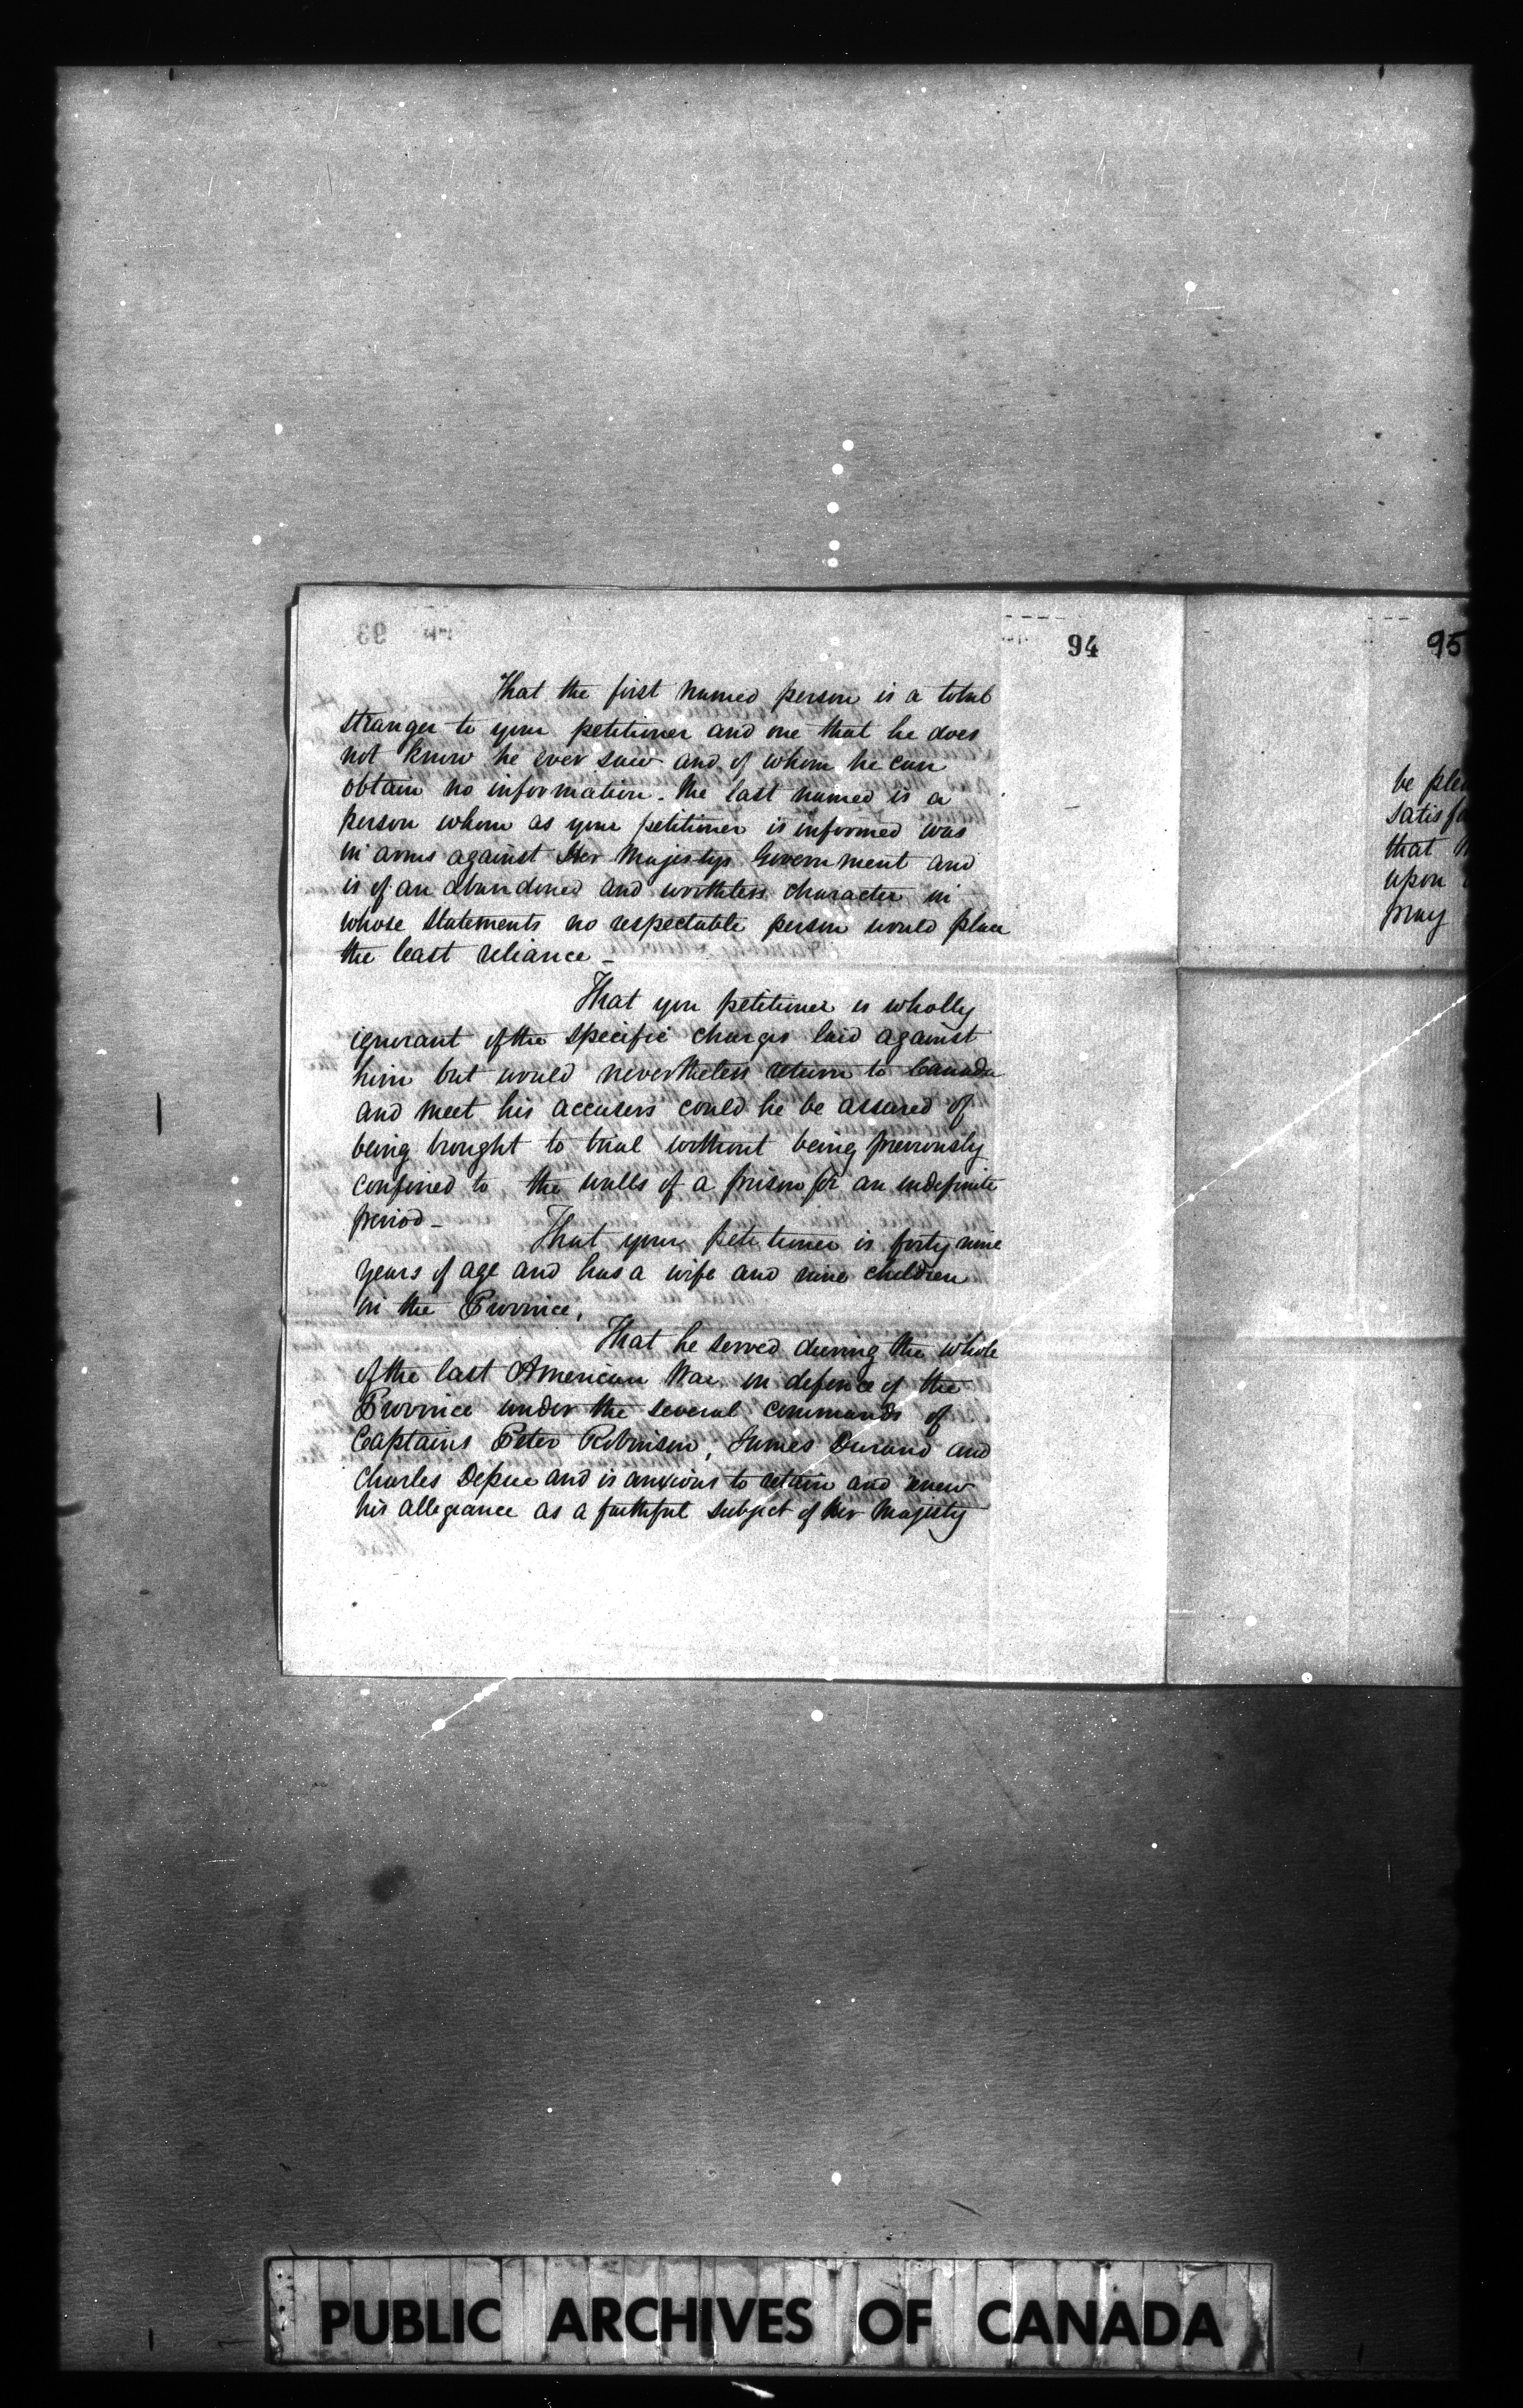 94
That the first named person is a total
stranger to your petitioner and one that he does
not know he ever saw and of whom he can
obtain no information. The last named is a
person whom as your petitioner is informed was
in arms against Her Majestys Government and
is of an abandoned and worthless character in
whose statements no respectable person would place
the least reliance –
That your petitioner is wholly
ignorant of the specific charges laid against
him but would nevertheless return to Canada
and meet his accusers could he be assured of
being brought to trial without being previously
confined to the walls of a prison for an indefinite
period –
That your petitioner is forty nine
years of age and has a wife and nine children
in the Province.
That he served during the whole
of the last American War in defence of the
Province under the several commands of
Captains Peter Robinson, James Durand and
Charles Depue and is anxious to return and renew
his allegiance as a faithful subject of Her Majesty
95
be
that
upon
pray
PUBLIC ARCHIVES OF CANADA